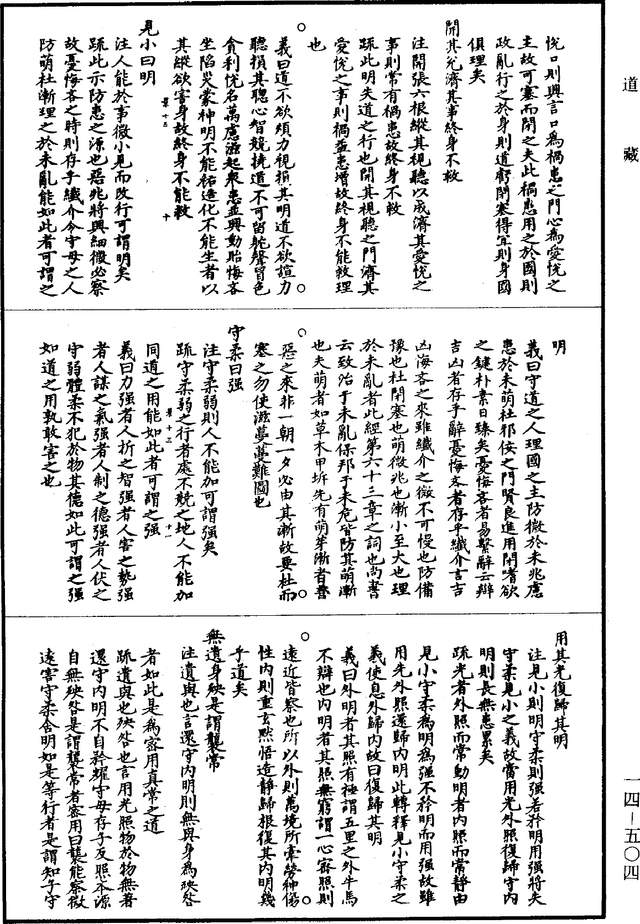 悅口則興言口為禍患之門心為愛悅之
主故可塞而閉之夫此禍患用之於國則
政亂行之於身則道虧閉塞得宜則身國
俱理矣
開其兌濟其事終身不救
注開張六根縱其視聽以成濟其愛悅之
事則常有禍患故終身不救
疏此明失道之行也開其視聽之門濟其
愛悅之事則禍益患增故終身不能救理
也
義曰道不欲煩力視損其明道不欲諠力
聽損其聰心智競撓道不可留躭聲冒色
貪利悅名萬慮滋起衆患並興動貽悔吝
坐陷災蒙神明不能祐造化不能生者以
其縱欲害身故終身不能救
見小曰明
注人能於事微小見而改行可謂明矣
疏此示防患之源也惡兆將興細微必察
故憂悔吝之時則存乎纖介令守母之人
防萌杜漸理之於未亂能如此者可謂之
明
義曰守道之人理國之主防微於未兆慮
患於未萌杜邪佞之門賢良進用閉嗜欲
之鍵朴素日臻矣憂悔吝者易繫辭云辯
吉凶者存乎辭憂悔吝者存乎纖介言吉
凶悔吝之來雖纖介之微不可慢也防備
豫也杜閉塞也萌微兆也漸小至大也理
於未亂者此經第六十三章之詞也尚書
云致治于未亂保邦于未危皆防其萌漸
也夫萌者如草木甲坼先有萌芽漸者善
惡之來非一朝一夕必由其漸故要杜而
塞之勿使滋蔓蔓難圖也
守柔曰强
注守柔弱則人不能加可謂强矣
疏守柔弱之行者處不競之地人不能加
同道之用能如此者可謂之强
義曰力强者人折之智强者人害之勢强
者人謀之氣强者人制之德强者人伏之
守弱體柔不犯於物其德如此可謂之强
如道之用孰敢害之也
用其光復歸其明
注見小則明守柔則强若矜明用强將失
守柔見小之義故當用光外照復歸守内
明則長無患累矣
疏光者外照而常動明者内照而常靜由
見小守柔為明為强不矜明而用强故雖
用先外照還歸内明此轉釋見小守柔之
義使息外歸内故曰復歸其明
義曰外明者其照有極謂五里之外牛馬
不辯也内明者其照無窮謂一心容照則
遠近皆察也所以外則萬境所牽勞神傷
性内則重玄默悟造靜歸根復其内明幾
乎道矣
無遺身殃是謂襲常
注遺與也言還守内明則無與身為殃咎
者如此是為密用真常之道
疏遺與也殃咎也言用光照物於物無著
還守内明不自矜耀守母存子反照本源
自無殃咎是謂襲常者密用曰襲能察微
遠害守柔含明如是等行者是謂知子守
道藏
一四-五〇四